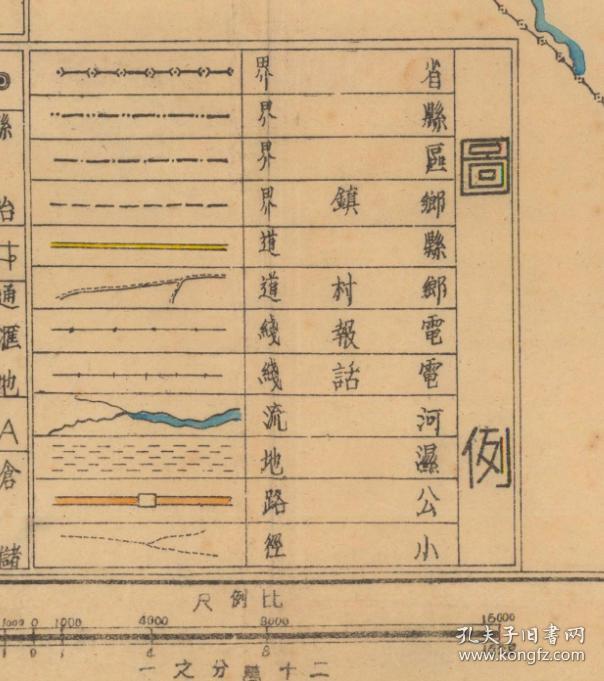 圖例
省界
縣界
區界
鄉鎮界
縣道
鄉村道
電報綫
電話綫
河流
濕地
公路
小徑
縣治
通滙地
A
倉儲
比例尺
1000 0 1000 4000 8000 15000
0 1 4 8
二十萬分之一
孔夫子旧书网
www.kongfz.com